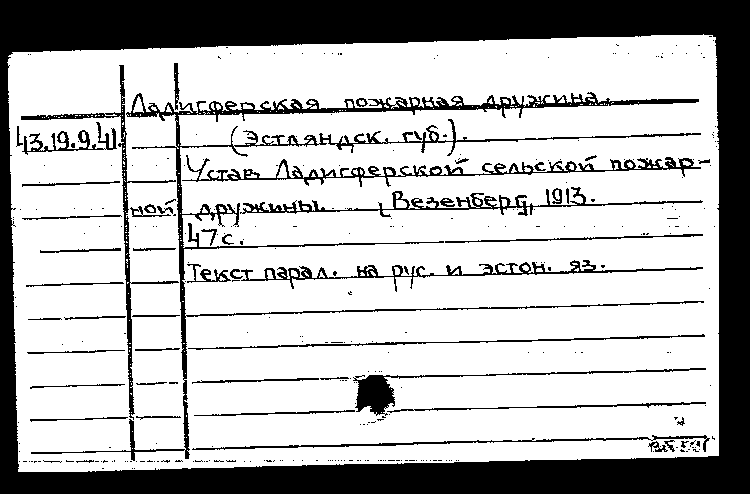 Ладигферская пожарная дружина.
43.19.9.41. (Эстляндск. губ.).
Устав Ладигферской сельской пожар-
ной дружины. [Везенберг], 1913.
47 с.
Текст парал. на рус. и эстон. яз.